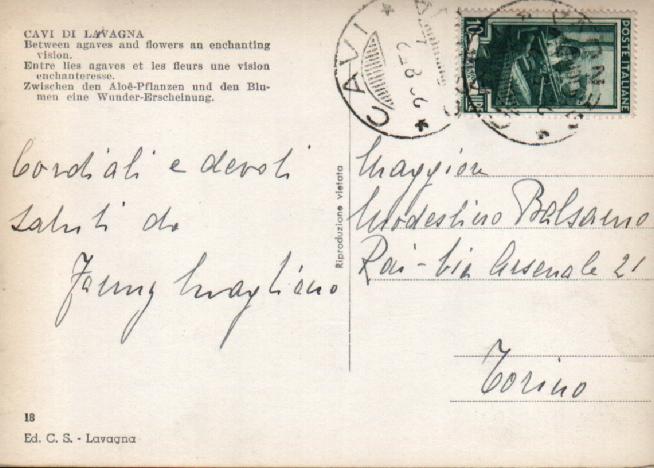 CAVI DI LAVAGNA
Between agaves and flowers an enchanting
vision.
Entre lies agaves et les fleurs une vision
enchanteresse.
Zwischen den Aloë-Pflanzen und den Blu-
men eine Wunder-Erscheinung.
Cordiali e devoti
saluti da
Magliano
18
Ed. C. S. - Lavagna
Riproduzione vietata
CAVI
10
POSTE ITALIANE
Maggiore
Modestino Balsamo
Rai - Via Arsenale 21
Torino